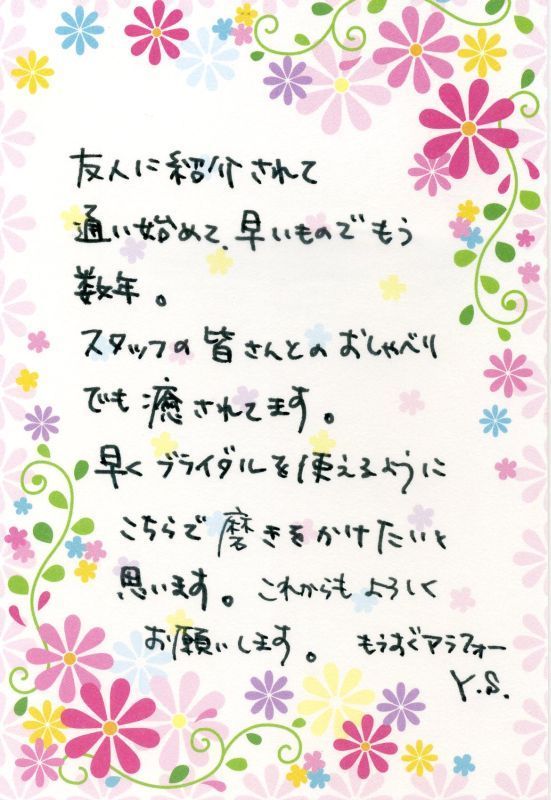 友人に紹介されて
通い始めて、早いものでもう
数年。
スタッフの皆さんとのおしゃべり
でも癒されてます。
早くブライダルを使えるように
こちらで磨きをかけたいと
思います。これからもよろしく
お願いします。 もうすぐアラフォー
Y.S.